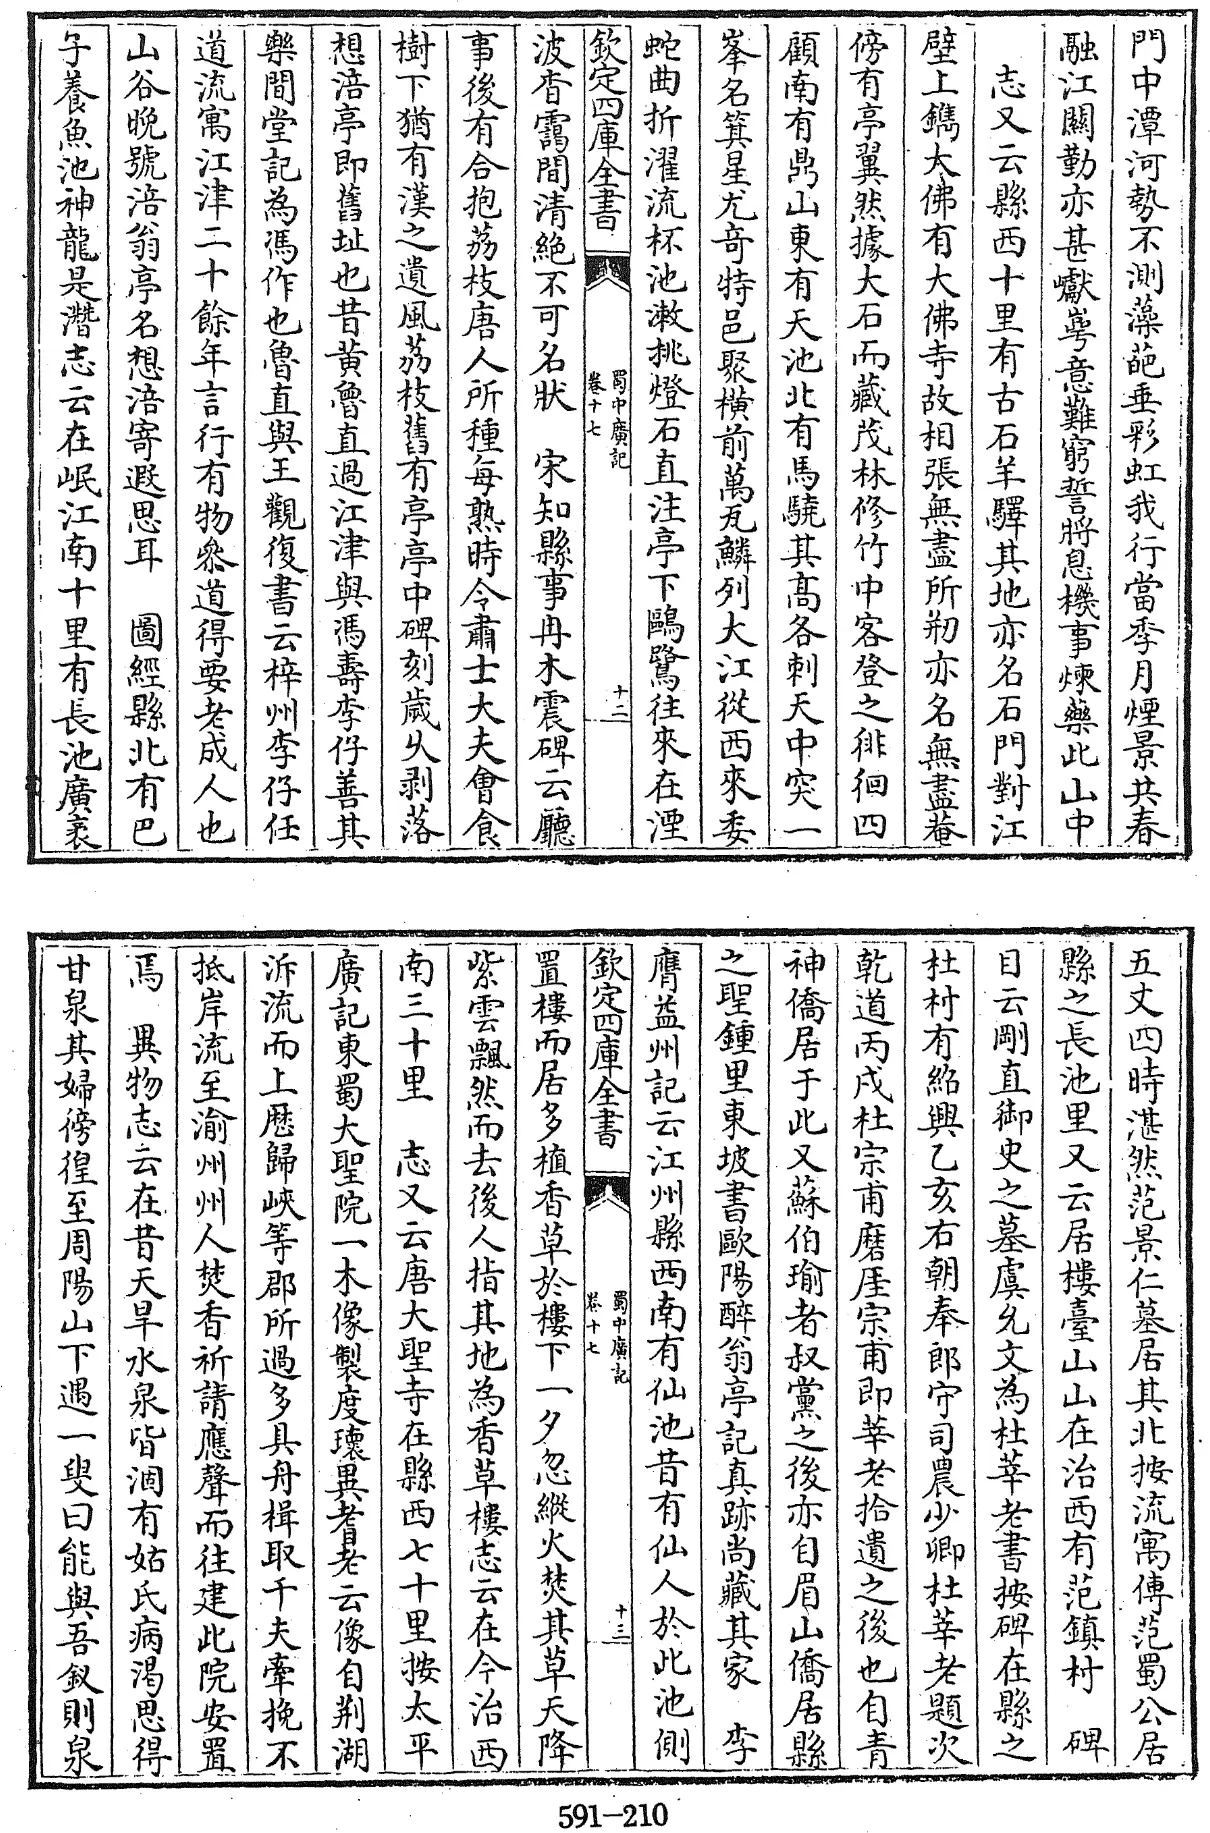 門中潭河勢不測藻葩垂彩虹我行當季月煙景共春
融江關勤亦甚巘崿意難窮誓將息機事煉藥此山中
志又云縣西十里有古石羊驛其地亦名石門對江
壁上鐫大佛有大佛寺故相張無盡所刱亦名無盡菴
傍有亭翼然據大石而藏茂林修竹中客登之徘徊四
顧南有鼎山東有天池北有馬驍其髙各刺天中突一
峯名箕星尤竒特邑聚橫前萬瓦鱗列大江從西來委
蛇曲折濯流杯池漱挑燈石直注亭下鷗鷺往來在湮
欽定四庫全書
蜀中廣記
卷十七
十二
波杳靄間清絶不可名狀　宋知縣事冉木震碑云廳
事後有合抱荔枝唐人所種每熟時令肅士大夫會食
樹下猶有漢之遺風荔枝舊有亭亭中碑刻歲乆剥落
想涪亭即舊址也昔黄魯直過江津與馮壽李仔善其
樂閒堂記為馮作也魯直與王觀復書云梓州李仔任
道流寓江津二十餘年言行有物叅道得要老成人也
山谷晚號涪翁亭名想涪寄遐思耳　圖經縣北有巴
子養魚池神龍是潛志云在岷江南十里有長池廣袤
五丈四時湛然范景仁墓居其北按流寓傳范蜀公居
縣之長池里又云居樓臺山山在治西有范鎮村　碑
目云剛直御史之墓虞允文為杜莘老書按碑在縣之
杜村有紹興乙亥右朝奉郎守司農少卿杜莘老題次
乾道丙戌杜宗甫磨厓宗甫即莘老拾遺之後也自青
神僑居于此又蘇伯瑜者叔黨之後亦自眉山僑居縣
之聖鍾里東坡書歐陽醉翁亭記真跡尚藏其家　李
膺益州記云江州縣西南有仙池昔有仙人於此池側
欽定四庫全書
蜀中廣記
卷十七
十三
置樓而居多植香草於樓下一夕忽縱火焚其草天降
紫雲飄然而去後人指其地為香草樓志云在今治西
南三十里　志又云唐大聖寺在縣西七十里按太平
廣記東蜀大聖院一木像製度瓌異耆老云像自荆湖
泝流而上歴歸峽等郡所過多具舟楫取千夫牽挽不
抵岸流至渝州州人焚香祈請應聲而往建此院安置
焉　異物志云在昔天旱水泉皆涸有姑氏病渴思得
甘泉其婦傍徨至周陽山下遇一叟曰能與吾釵則泉
591-210